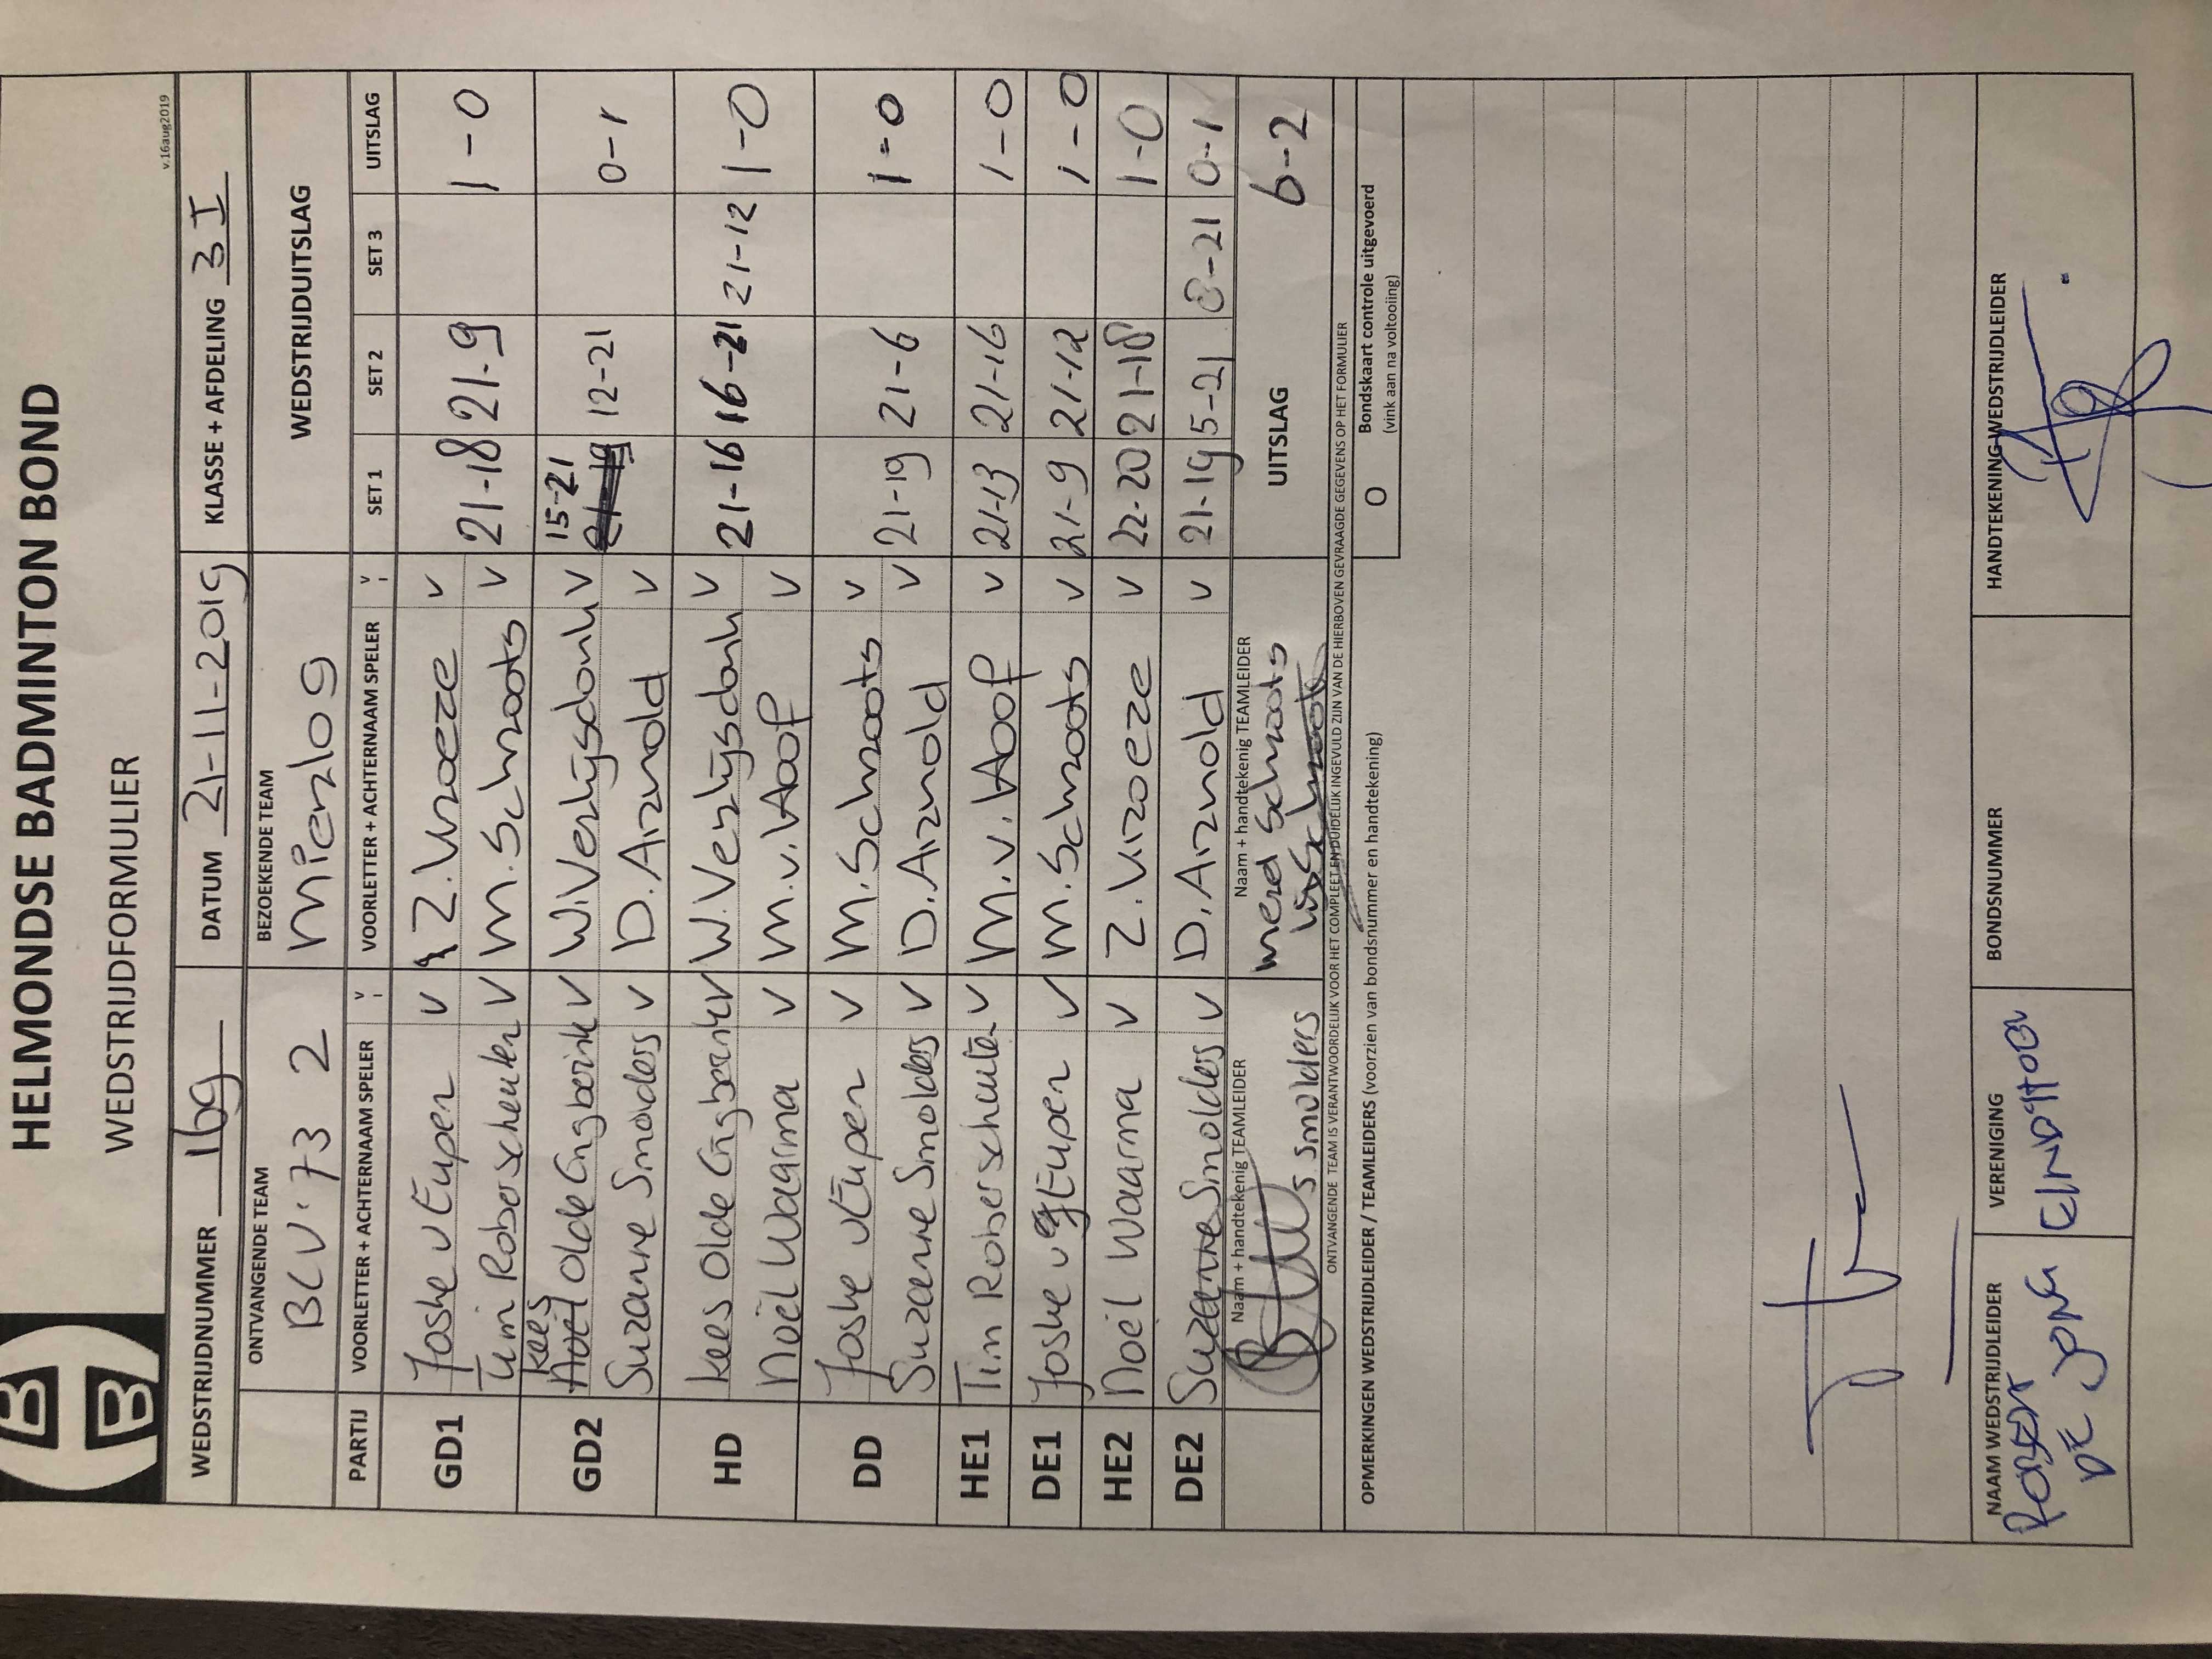 HELMONDSE BADMINTON BOND
WEDSTRIJDFORMULIER
v.16aug2019
WEDSTRIJDNUMMER 169 DATUM 21-11-2019 KLASSE + AFDELING 3 I
ONTVANGENDE TEAM BEZOEKENDE TEAM WEDSTRIJDUITSLAG
BCV '73 2 Mierlo 9
PARTIJ VOORLETTER + ACHTERNAAM SPELER V VOORLETTER + ACHTERNAAM SPELER V SET 1 SET 2 SET 3 UITSLAG
GD1 Joske v Eupen v Z. Vroeze v 21-18 21-9 1-0
Tim Roberscheuten v M. Schroots v
GD2 Kees Olde Engberink v W. Verlijsdonk v 15-21 12-21 0-1
Suzanne Smolders v D. Arnold v
HD Kees Olde Engberink v W. Verlijsdonk v 21-16 16-21 21-12 1-0
Noël Waarma v M. v. Hoof v
DD Joske v Eupen v M. Schroots v 21-19 21-6 1-0
Suzanne Smolders v D. Arnold v
HE1 Tim Roberscheuten v M. v. Hoof v 21-13 21-16 1-0
DE1 Joske v Eupen v M. Schroots v 21-9 21-12 1-0
HE2 Noël Waarma v Z. Vroeze v 22-20 21-18 1-0
DE2 Suzanne Smolders v D. Arnold v 21-19 15-21 8-21 0-1
Naam + handtekenig TEAMLEIDER Naam + handtekenig TEAMLEIDER UITSLAG 6-2
S Smolders Merd Schroots
ONTVANGENDE TEAM IS VERANTWOORDELIJK VOOR HET COMPLEET EN DUIDELIJK INGEVULD ZIJN VAN DE HIERBOVEN GEVRAAGDE GEGEVENS OP HET FORMULIER
OPMERKINGEN WEDSTRIJDLEIDER / TEAMLEIDERS (voorzien van bondsnummer en handtekening) O Bondskaart controle uitgevoerd
(vink aan na voltooiing)
NAAM WEDSTRIJDLEIDER VERENIGING BONDSNUMMER HANDTEKENING WEDSTRIJDLEIDER
ROBERT
DE JONG